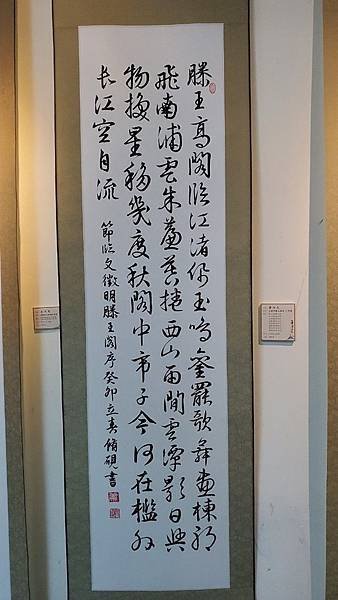 滕王高閣臨江渚佩玉鳴鑾罷歌舞畫棟朝
飛南浦雲朱簾暮捲西山雨閒雲潭影日悠悠
物換星移幾度秋閣中帝子今何在檻外
長江空自流
節臨文徵明滕王閣序癸卯立春脩硯書